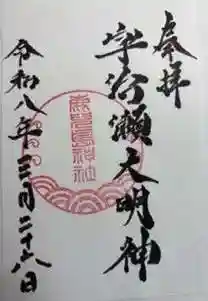 奉拝
宇治瀬大明神
鹿兒島神社
令和八年三月二十六日